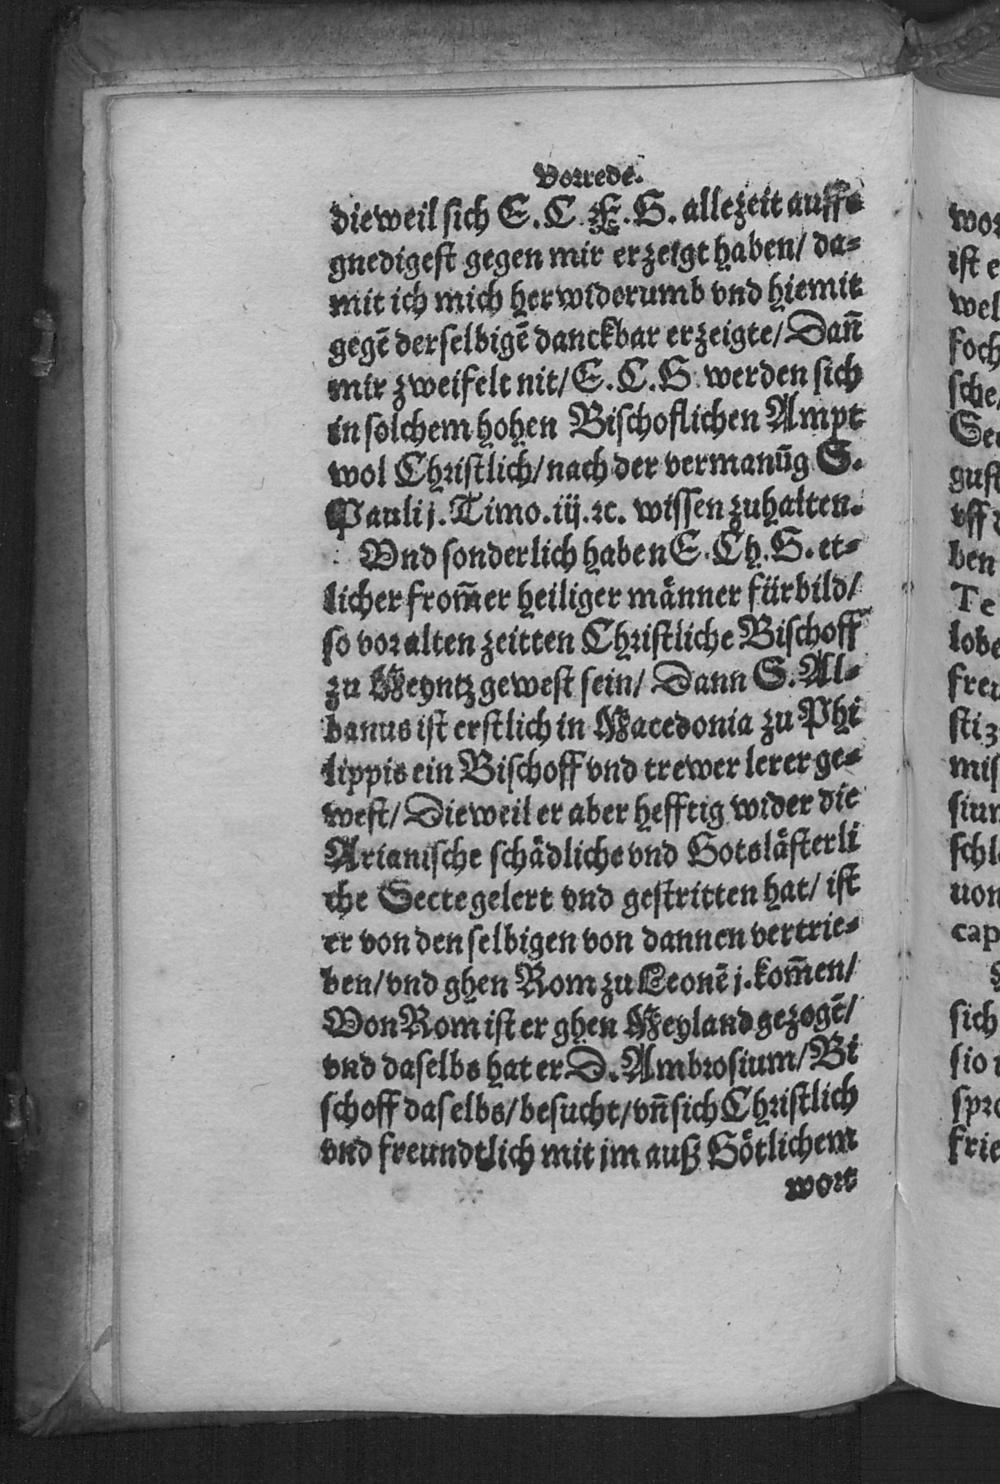 Vorrede.
dieweil sich E. C. F. G. allezeit auffs
gnedigest gegen mir erzeigt haben/ da-
mit ich mich herwiderumb vnd hiemit
gegē derselbigē danckbar erzeigte/ Dañ
mir zweifelt nit/ E. C. G. werden sich
in solchem hohen Bischoflichen Ampt
wol Christlich/ nach der vermanūg S.
Pauli j. Timo. iij. ꝛc. wissen zuhalten.
Vnd sonderlich haben E. Ch. G. et-
licher from̄er heiliger männer fürbild/
so vor alten zeitten Christliche Bischoff
zu Meyntz gewest sein/ Dann S. Al-
banus ist erstlich in Macedonia zu Phi
lippis ein Bischoff vnd trewer lerer ge-
west/ Dieweil er aber hefftig wider die
Arianische schädliche vnd Gotslästerli
che Secte gelert vnd gestritten hat/ ist
er von den selbigen von dannen vertrie-
ben/ vnd ghen Rom zu Leonē j. kom̄en/
Von Rom ist er ghen Meyland gezogē/
vnd daselbs hat er D. Ambrosium/ Bi
schoff daselbs/ besucht/ vñ sich Christlich
vnd freundtlich mit jm auß Götlichem
wort
wor
ist e
wel
foch
sche/
Se
gust
vff
ben
Te
lobe
freu
sti z
mis
siun
schl
uon
cap
sich
sio
spro
frie